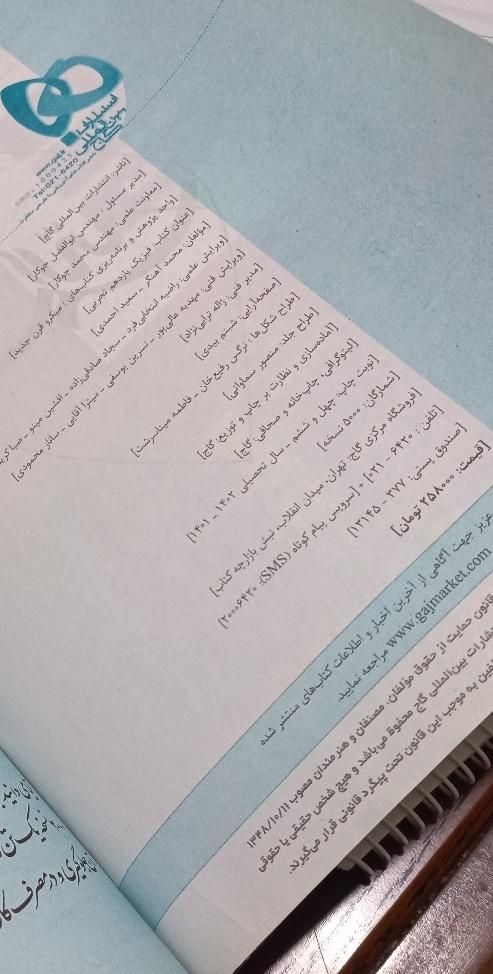 انتشارات
بین‌المللی
گاج
www.gaj.ir
Tel:021-6420
[ناشر: انتشارات بین‌المللی گاج]
[مدیر مسئول: مهندس ابوالفضل جوکار]
[معاونت علمی: مهندس محمد جوکار]
[واحد پژوهش و برنامه‌ریزی کتاب‌های: میکرو قرن جدید]
[عنوان کتاب: فیزیک یازدهم تجربی]
[مؤلفان: محمد آهنگر ـ سعید احمدی]
[ویرایش علمی: راضیه انتخابی‌فرد ـ سجاد صادقی‌زاده ـ افشین مینو ـ صبا
[ویرایش فنی: مهدیه عالی‌پور ـ نسرین یوسفی ـ میترا آقایی ـ ساناز محمودی]
[مدیر فنی: ژاله ترابی‌نژاد]
[صفحه‌آرایی: شبنم بیدی]
[طراح شکل‌ها: نرگس رفیع‌خان ـ فاطمه میناسرشت]
[طراح جلد: منصور سماواتی]
[آماده‌سازی و نظارت بر چاپ و توزیع: گاج]
[لیتوگرافی، چاپ‌خانه و صحافی: گاج]
[نوبت چاپ: چهل و ششم ـ سال تحصیلی ۱۴۰۲ - ۱۴۰۱]
[شمارگان: ۵۰۰۰ نسخه]
[فروشگاه مرکزی گاج: تهران، میدان انقلاب، نبش بازارچه کتاب]
[تلفن: ۶۴۲۰ - ۰۲۱] + [سرویس پیام کوتاه (SMS): ۲۰۰۰۶۴۲۰]
[صندوق پستی: ۳۷۷ - ۱۳۱۴۵]
[قیمت: ۲۵۸۰۰۰ تومان]
عزیز جهت آگاهی از آخرین اخبار و اطلاعات کتاب‌های منتشر شده
www.gajmarket.com مراجعه نمایید.
قانون حمایت از حقوق مؤلفان، مصنفان و هنرمندان مصوب ۱۳۴۸/۱۰/۱۱
انتشارات بین‌المللی گاج محفوظ می‌باشد و هیچ شخص حقیقی یا حقوقی
به موجب این قانون تحت پیگرد قانونی قرار می‌گیرند.
و در مصرف